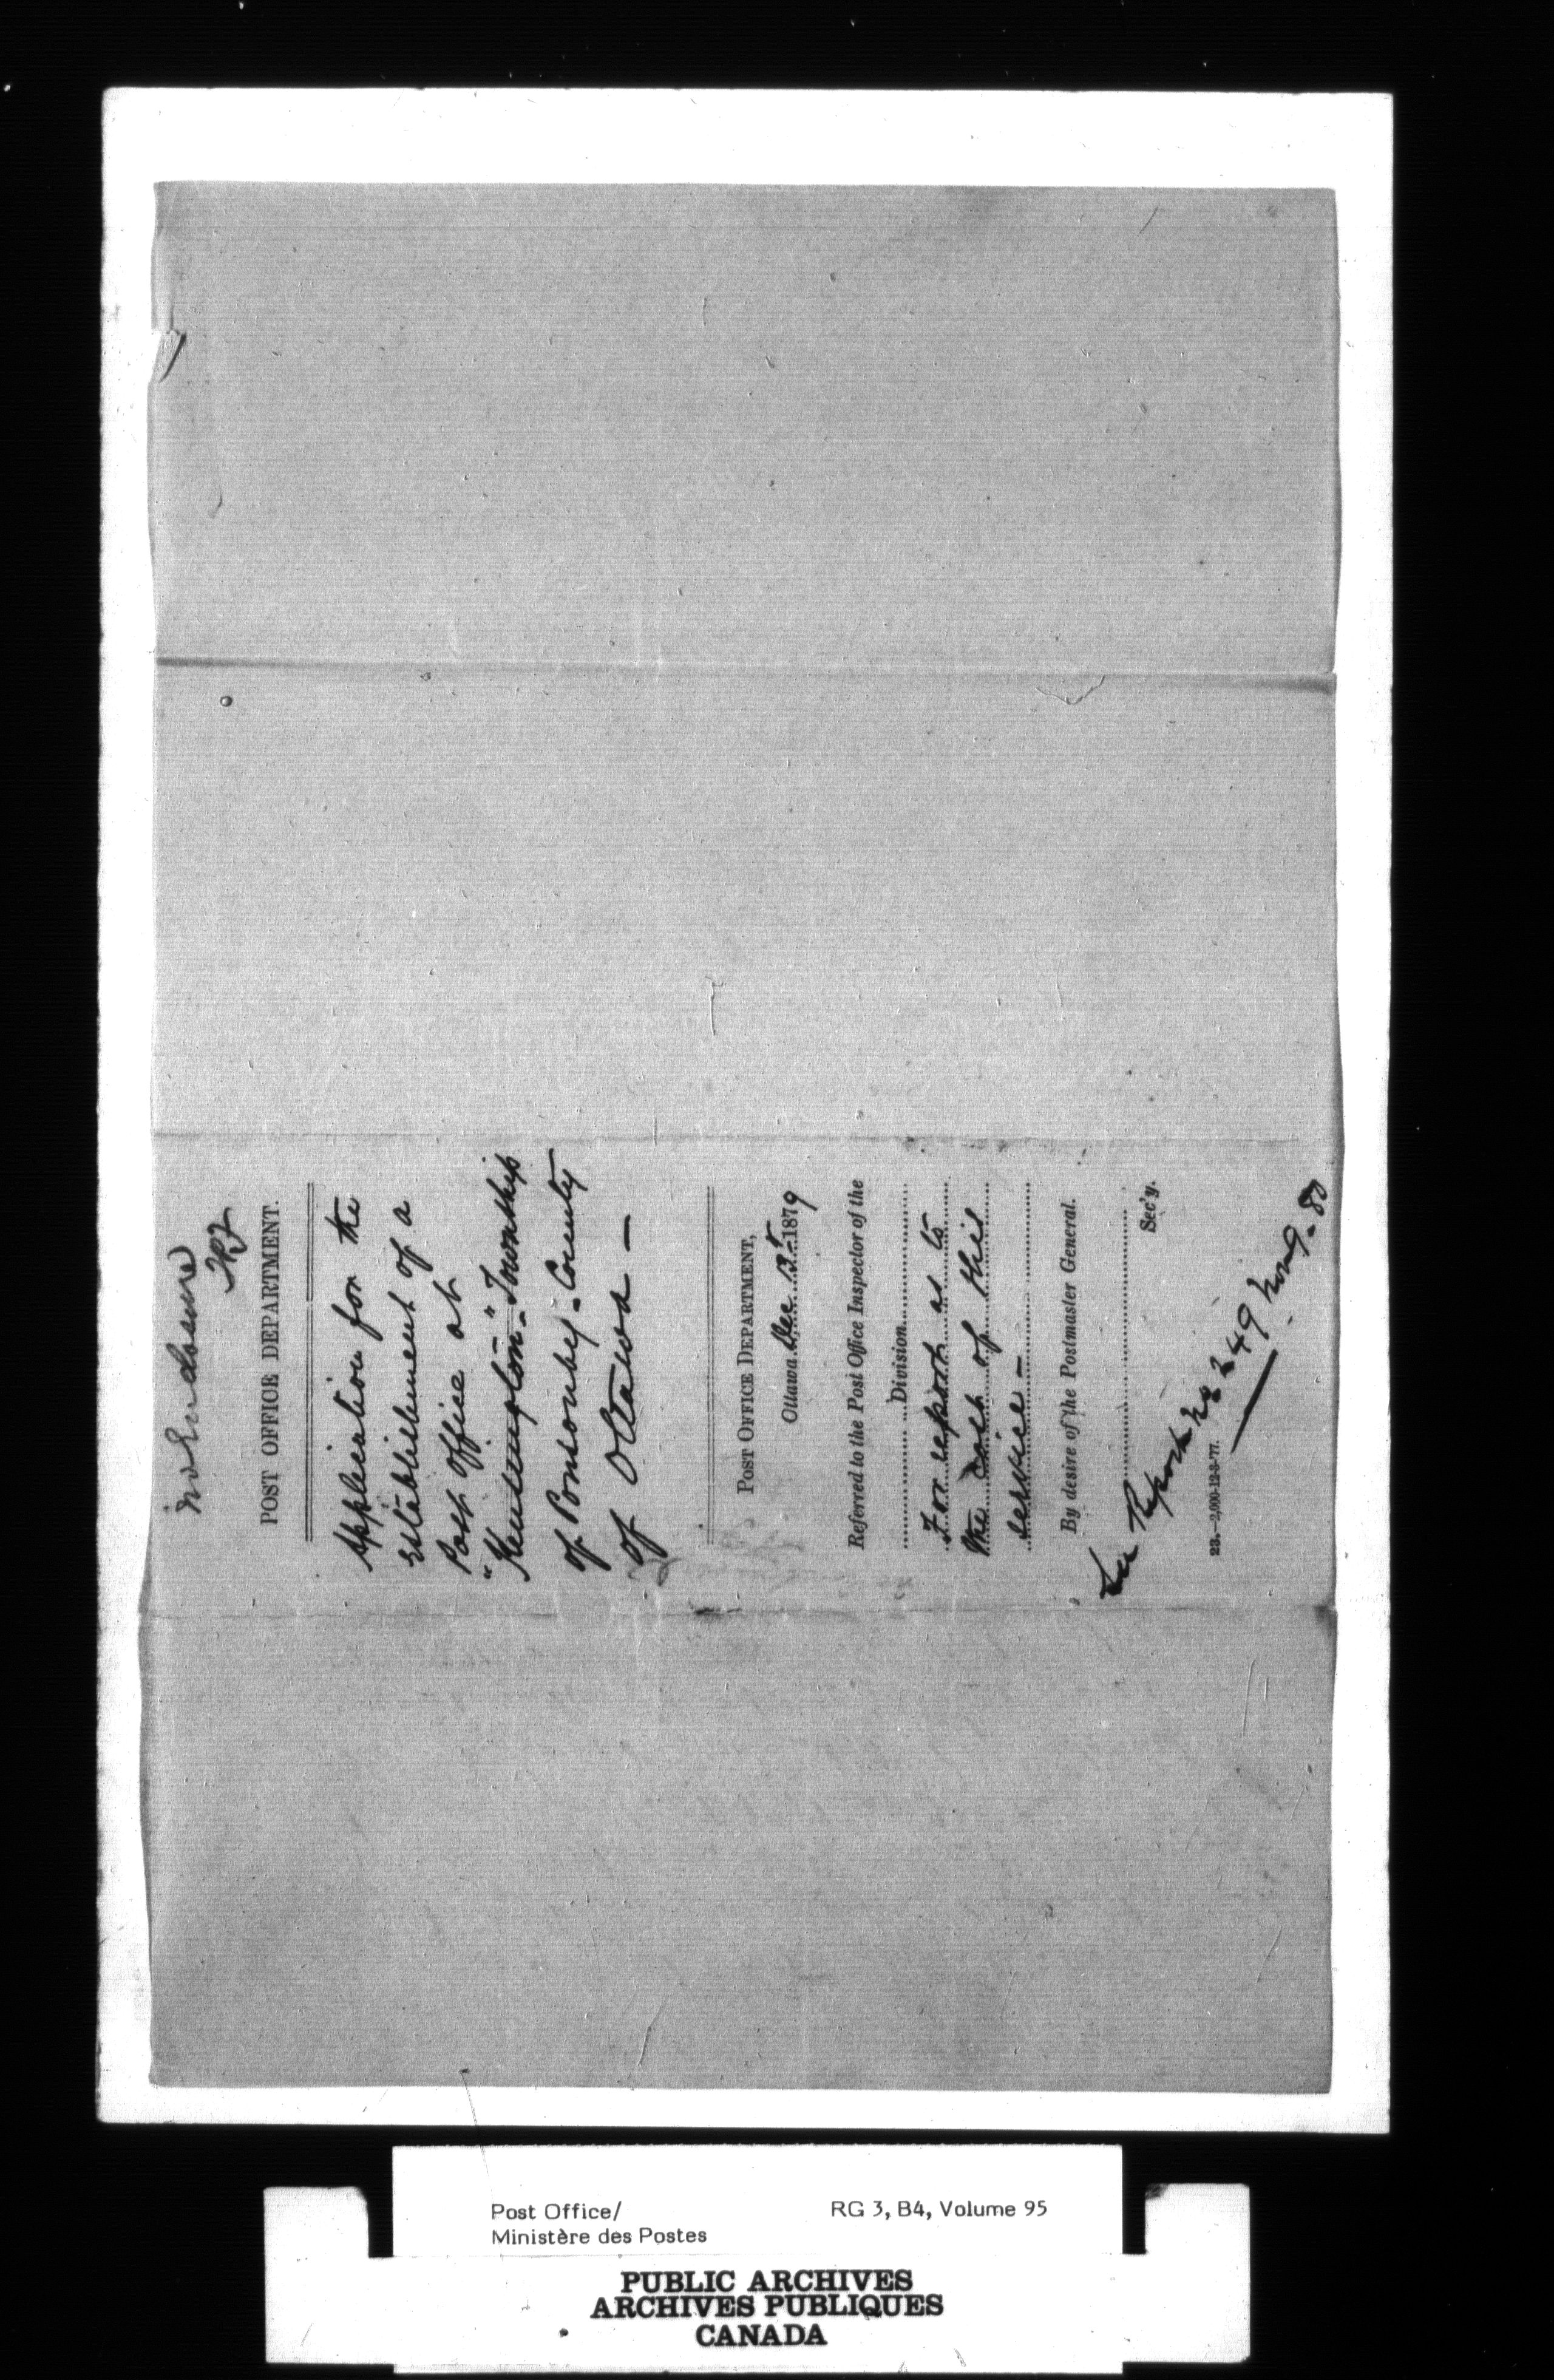 no Enclosure
POST OFFICE DEPARTMENT.
Application for the
Establishment of a
Post Office at
"Kensington"- Township
of Ponsonby - County
of Ottawa -
POST OFFICE DEPARTMENT,
Ottawa Dec 1879
Referred to the Post Office Inspector of the
Division
For report as to
the cost of this
service -
By desire of the Postmaster General.
Sec'y.
See Report No 249 Nov 9. 80
23.-2,000-12-3-'77.
Post Office/
Ministère des Postes
RG 3, B4, Volume 95
PUBLIC ARCHIVES
ARCHIVES PUBLIQUES
CANADA